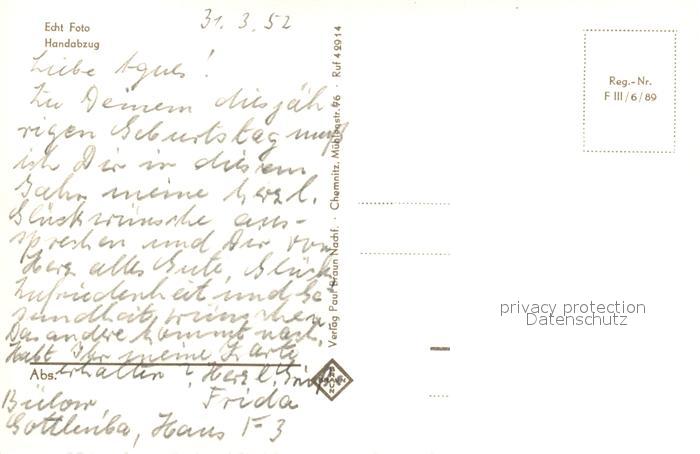 31. 3. 52
Echt Foto
Handabzug
Liebe Agnes!
Zu Deinem diesjäh-
rigen Geburtstag muß
ich Dir in diesem
Jahr meine herzl.
Glückwünsche aus-
sprechen und Dir von
Herz alles Gute, Glück
Zufriedenheit und Ge
sundheit wünschen
Das andere kommt nach.
Habt Ihr meine Karte
Abs. erhalten? Herzl. Grüße
Bülow, Frida
Gottleuba, Haus F 3
Verlag Paul Braun Nachf. · Chemnitz, Mühlenstr. 96 · Ruf 42914
Reg.-Nr.
F III/6/89
privacy protection
Datenschutz